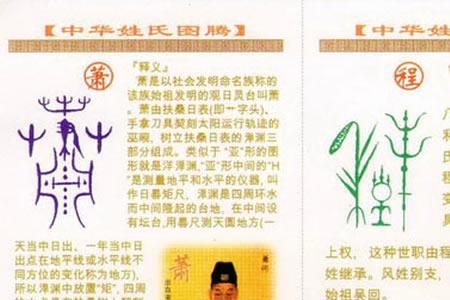 【中华姓氏图腾】
萧
『释义』
萧是以社会发明命名族称的
该族始祖发明的观日灵台叫萧
。萧由扶桑日表(即艹字头)、
手拿刀具契刻太阳运行轨迹的
巫觋、树立扶桑日表的渊三
部分组成。类似于“亚”形的图
形就是渊,“亚”形中间的“H
”是测量地平和水平的仪器,叫
作日晷矩尺,渊是四周环水
而中间隆起的台地、在中间设
有坛台,用晷尺测天圆地方(一
天当中日出、一年当中日
出点在地平线或水平线不
同方位的变化称为地方),
所以渊中放置“矩”,四周
萧
【中华姓
程
上权，这种世职由程
姓继承。风姓别支，
始祖吴回。